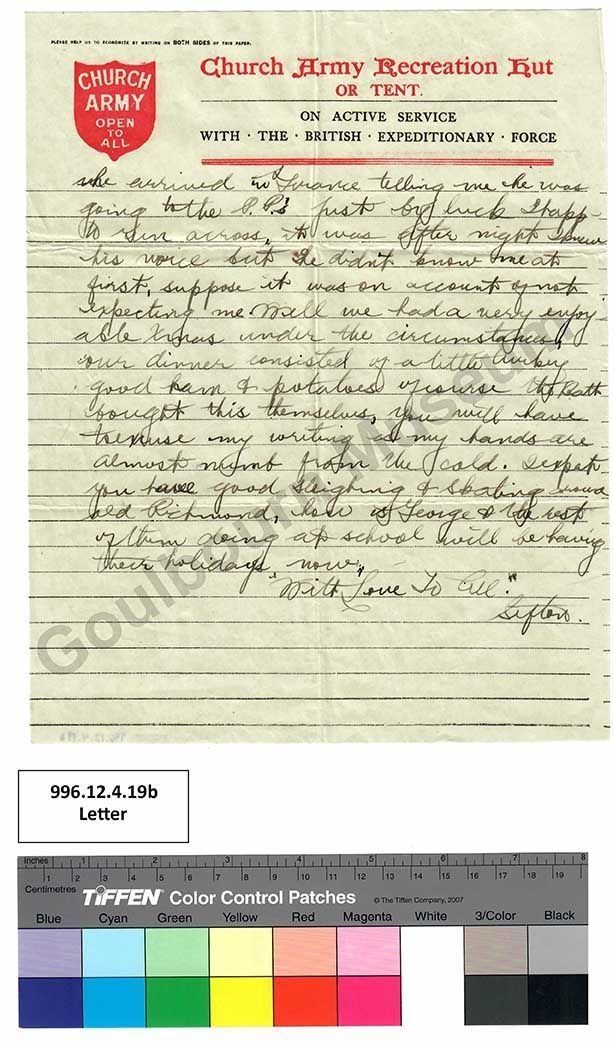 PLEASE HELP US TO ECONOMIZE BY WRITING ON BOTH SIDES OF THIS PAPER.
CHURCH
ARMY
OPEN
TO
ALL
Church Army Recreation Hut
OR TENT.
ON ACTIVE SERVICE
WITH · THE · BRITISH · EXPEDITIONARY · FORCE
he arrived in France telling me he was
going to the P.P.s just by luck I happ-
to run across, it was after night I knew
his voice but he didn't know me at
first, suppose it was on account of not
expecting me Well we had a very enjoy
able Xmas under the circumstances,
our dinner consisted of a little turkey
good ham & potatoes of course the Batt
bought this themselves, you will have
to excuse my writing as my hands are
almost numb from the cold. I expect
you have good sleighing & skating
old Richmond, how is George & the rest
of them doing at school will be having
their holidays now,
"With Love To All."
Sifton.
Goulbourn Museum
996.12.4.19b
Letter
Inches 1 2 3 4 5 6 7 8
1 2 3 4 5 6 7 8 9 10 11 12 13 14 15 16 17 18 19
Centimetres
TIFFEN Color Control Patches © The Tiffen Company, 2007
Blue Cyan Green Yellow Red Magenta White 3/Color Black